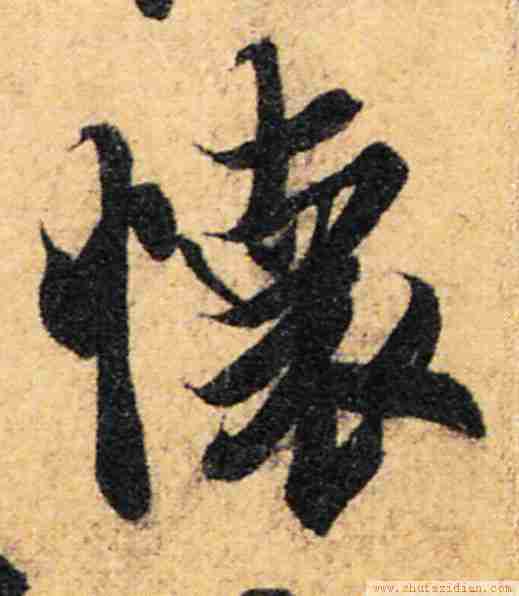 懷
www.shufazidian.com